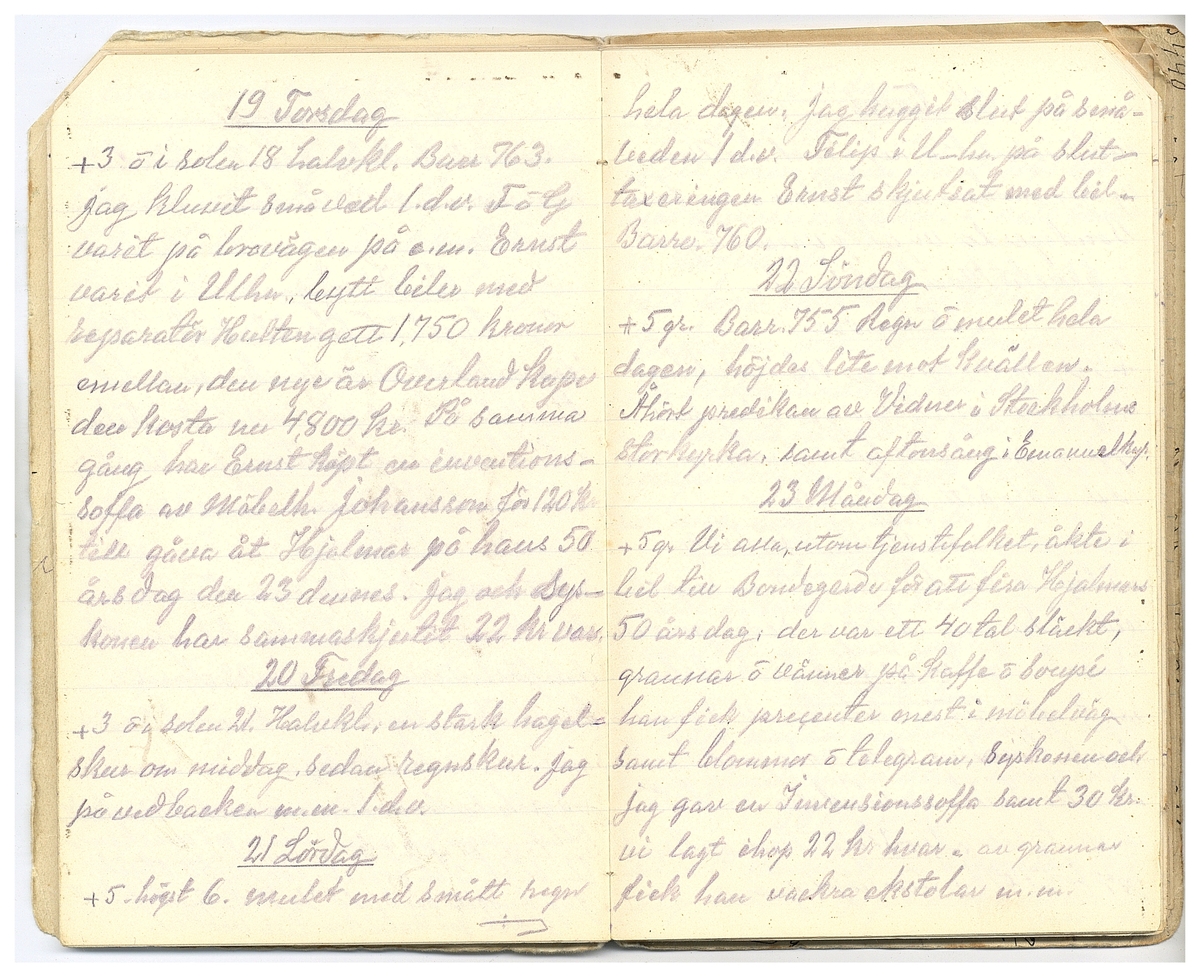 19 Torsdag
+3 ō i solen 18 halvkl. Barr 763.
jag kluvit småved 1.d.v. F ō G
varit på brovägen på e.m. Ernst
varit i Ulhn, bytt biler med
reparatör Hulten gett 1,750 kronor
emellan, den nye är Overland Kupe
den kosta nu 4,800 kr. På samma
gång har Ernst köpt en inventions-
soffa av Möbelh. Johansson för 120 k
till gåva åt Hjalmar på hans 50
årsdag den 23 dennes. Jag och sys-
konen har sammaskjutit 22 kr var.
20 Fredag
+3 ō i solen 21. Halvkl. en stark hagel-
skur om middag, sedan regnskur. Jag
på vedbacken m.m. 1.d.v.
21 Lördag
+5 högst 6. mulet med smått regn
hela dagen. Jag huggit slut på små-
veden 1 d.v. Filip i U-hn. på slut-
taxeringen Ernst skjutsat med bil.
Barro. 760.
22 Söndag
+5 gr. Barr. 755 Regn ō mulet hela
dagen, höjdas lite mot kvällen.
Åhört predikan av Vidner i Stockholms
storkyrka, samt aftonsång i Emanuelkyr.
23 Måndag
+5 gr. Vi alla, utom tjenstefolket, åkte i
bil till Bondegärde för att fira Hjalmars
50 årsdag; der var ett 40 tal släckt,
grannar ō vänner på kaffe ō soupé
han fick precenter mest i möbelväg
samt blommor ō telegram, syskonen och
jag gav en Invensionssoffa samt 30 kr.
vi lagt ihop 22 kr hvar. av grannar
fick han vackra ekstolar m.m.